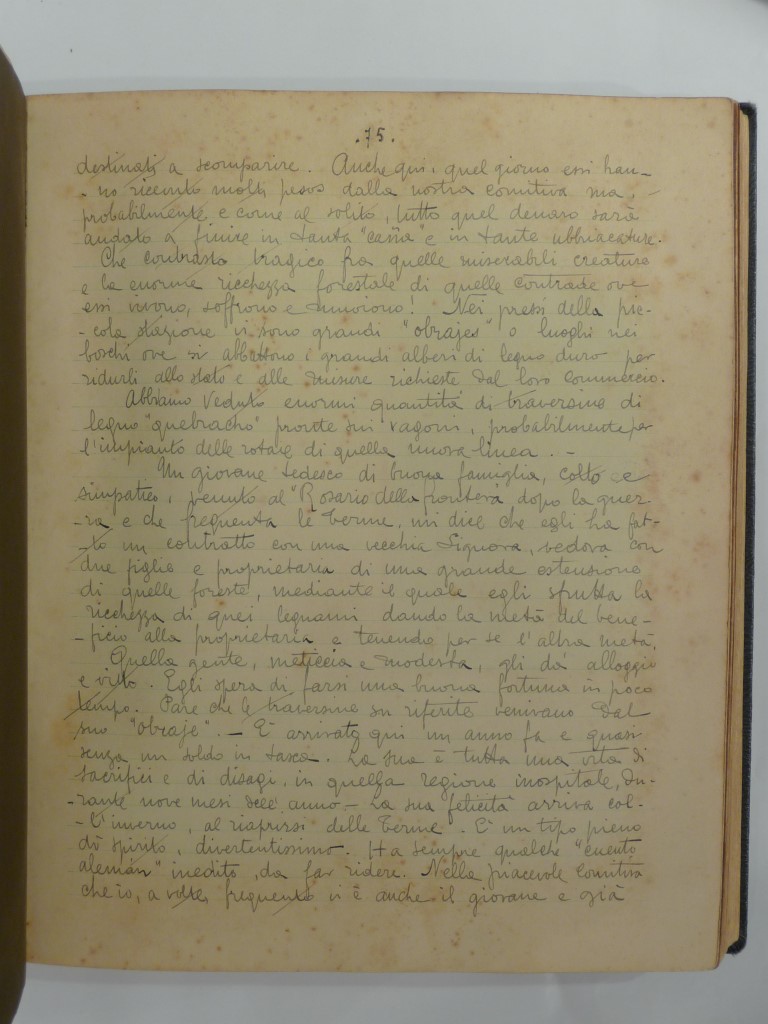 .75.
destinati a scomparire. Anche qui, quel giorno essi han-
-no ricevuto molti pesos dalla nostra comitiva ma, -
probabilmente e come al solito, tutto quel denaro sarà
andato a finire in tanta "caña" e in tante ubbriacature.
Che contrasto tragico fra quelle miserabili creature
e la enorme ricchezza forestale di quelle contrade ove
essi vivono, soffrono e muoiono! Nei pressi della pic-
-cola stazione vi sono grandi "obrajes" o luoghi nei
boschi ove si abbattono i grandi alberi di legno duro per
ridurli allo stato e alle misure richieste dal loro commercio.
Abbiamo veduto enormi quantità di traversine di
legno "quebracho" pronte sui vagoni, probabilmente per
l'impianto delle rotaie di quella nuova linea. -
Un giovane tedesco di buona famiglia, colto e
simpatico, venuto al "Rosario della frontera dopo la guer-
-ra e che frequenta le Terme, mi dice che egli ha fat-
-to un contratto con una vecchia Signora, vedova con
due figlie e proprietaria di una grande estensione
di quelle foreste, mediante il quale egli sfrutta la
ricchezza di quei legnami dando la metà del bene-
-ficio alla proprietaria e tenendo per se l'altra metà.
Quella gente, meticcia e modesta, gli dà alloggio
e vitto. Egli spera di farsi una buona fortuna in poco
tempo. Pare che le traversine su riferite venivano dal
suo "obraje". - È arrivato qui un anno fa e quasi
senza un soldo in tasca. La sua è tutta una vita di
sacrifici e di disagi, in quella regione inospitale, du-
-rante nove mesi dell'anno. - La sua felicità arriva col-
-l'inverno, al riaprirsi delle Terme. È un tipo pieno
di spirito, divertentissimo. Ha sempre qualche "cuento
alemán" inedito, da far ridere. Nella piacevole comitiva
che io, a volte, frequento vi è anche il giovane e già